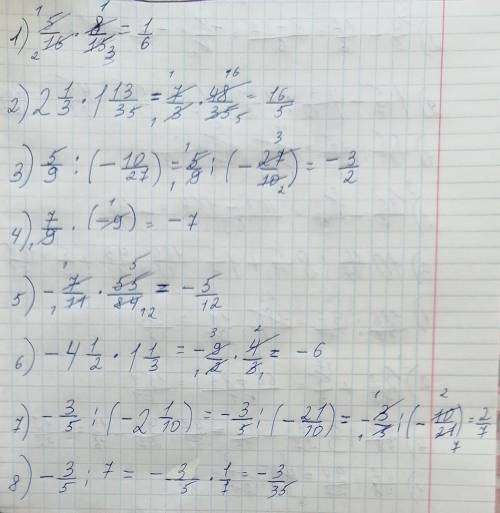 1) 5/16 · 8/15 = 1/6
2) 2 1/3 · 1 13/35 = 7/3 · 48/35 = 16/5
3) 5/9 : (- 10/27) = 5/9 : (- 27/10) = -3/2
4) 7/9 · (-9) = -7
5) - 7/11 · 55/84 = - 5/12
6) -4 1/2 · 1 1/3 = - 9/2 · 4/3 = -6
7) - 3/5 : (-2 1/10) = - 3/5 : (- 21/10) = - 3/5 : (- 10/21) = 2/7
8) - 3/5 : 7 = - 3/5 · 1/7 = - 3/35